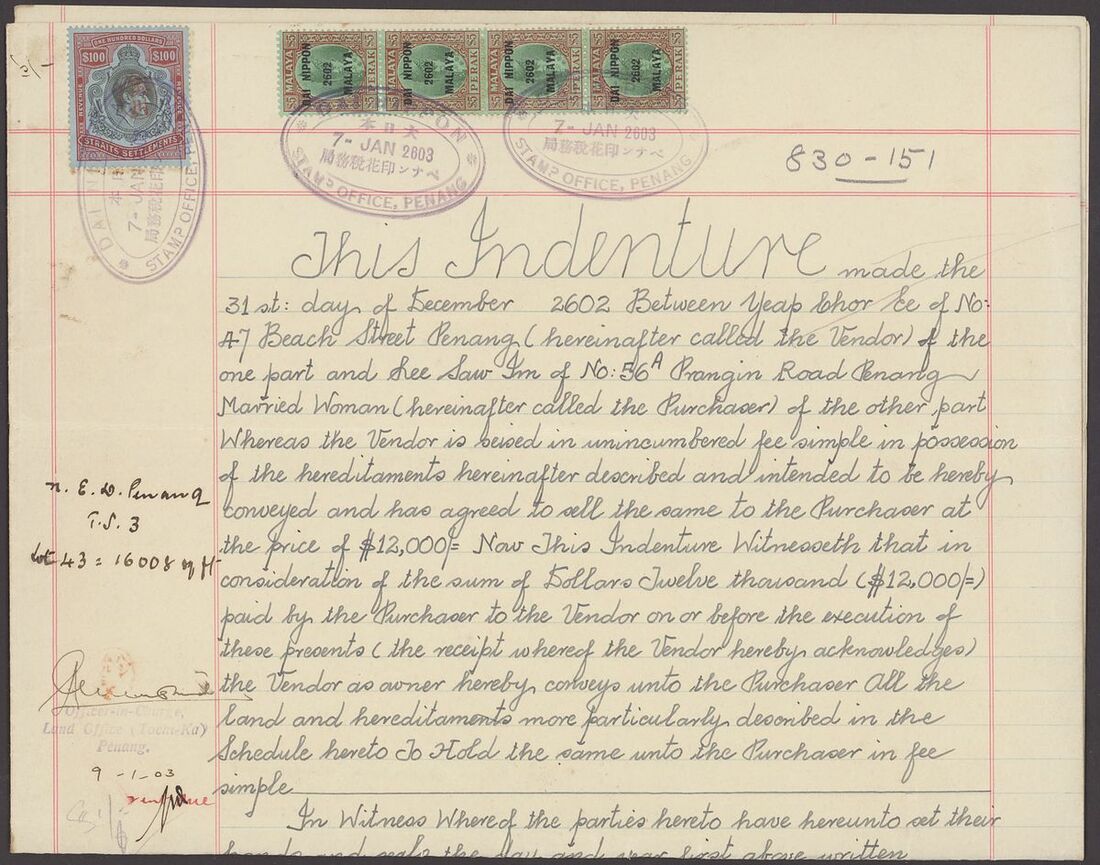 ONE HUNDRED DOLLARS
$100 $100
REVENUE
STRAITS SETTLEMENTS
$5 MALAYA PERAK $5 DAI NIPPON 2602 MALAYA
$5 MALAYA PERAK $5 DAI NIPPON 2602 MALAYA
$5 MALAYA PERAK $5 DAI NIPPON 2602 MALAYA
$5 MALAYA PERAK $5 DAI NIPPON 2602 MALAYA
DAI
本
7- JAN
局務税花印
STAMP OFFICE
本日大
7- JAN 2603
局務税花印ンナペ
STAMP OFFICE, PENANG
7- JAN 2603
局務税花印ンナペ
STAMP OFFICE, PENANG
830-151
This Indenture made the
31st: day of December 2602 Between Yeap Chor Ee of No:
47 Beach Street Penang (hereinafter called the Vendor) of the
one part and Lee Saw Im of No: 56A Prangin Road Penang
Married Woman (hereinafter called the Purchaser) of the other part
Whereas the Vendor is seised in unincumbered fee simple in possession
of the hereditaments hereinafter described and intended to be hereby
conveyed and has agreed to sell the same to the Purchaser at
the price of $12,000/= Now This Indenture Witnesseth that in
consideration of the sum of Dollars Twelve thousand ($12,000/=)
paid by the Purchaser to the Vendor on or before the execution of
these presents (the receipt whereof the Vendor hereby acknowledges)
the Vendor as owner hereby conveys unto the Purchaser All the
land and hereditaments more particularly described in the
Schedule hereto To Hold the same unto the Purchaser in fee
simple
In Witness Whereof the parties hereto have hereunto set their
hands and seals the day and year first above written
n. E. D. Penang
T.S. 3
Lot 43 = 16008 sq ft
Officer-in-Charge,
Land Office (Tochi-Ka)
Penang.
9-1-03